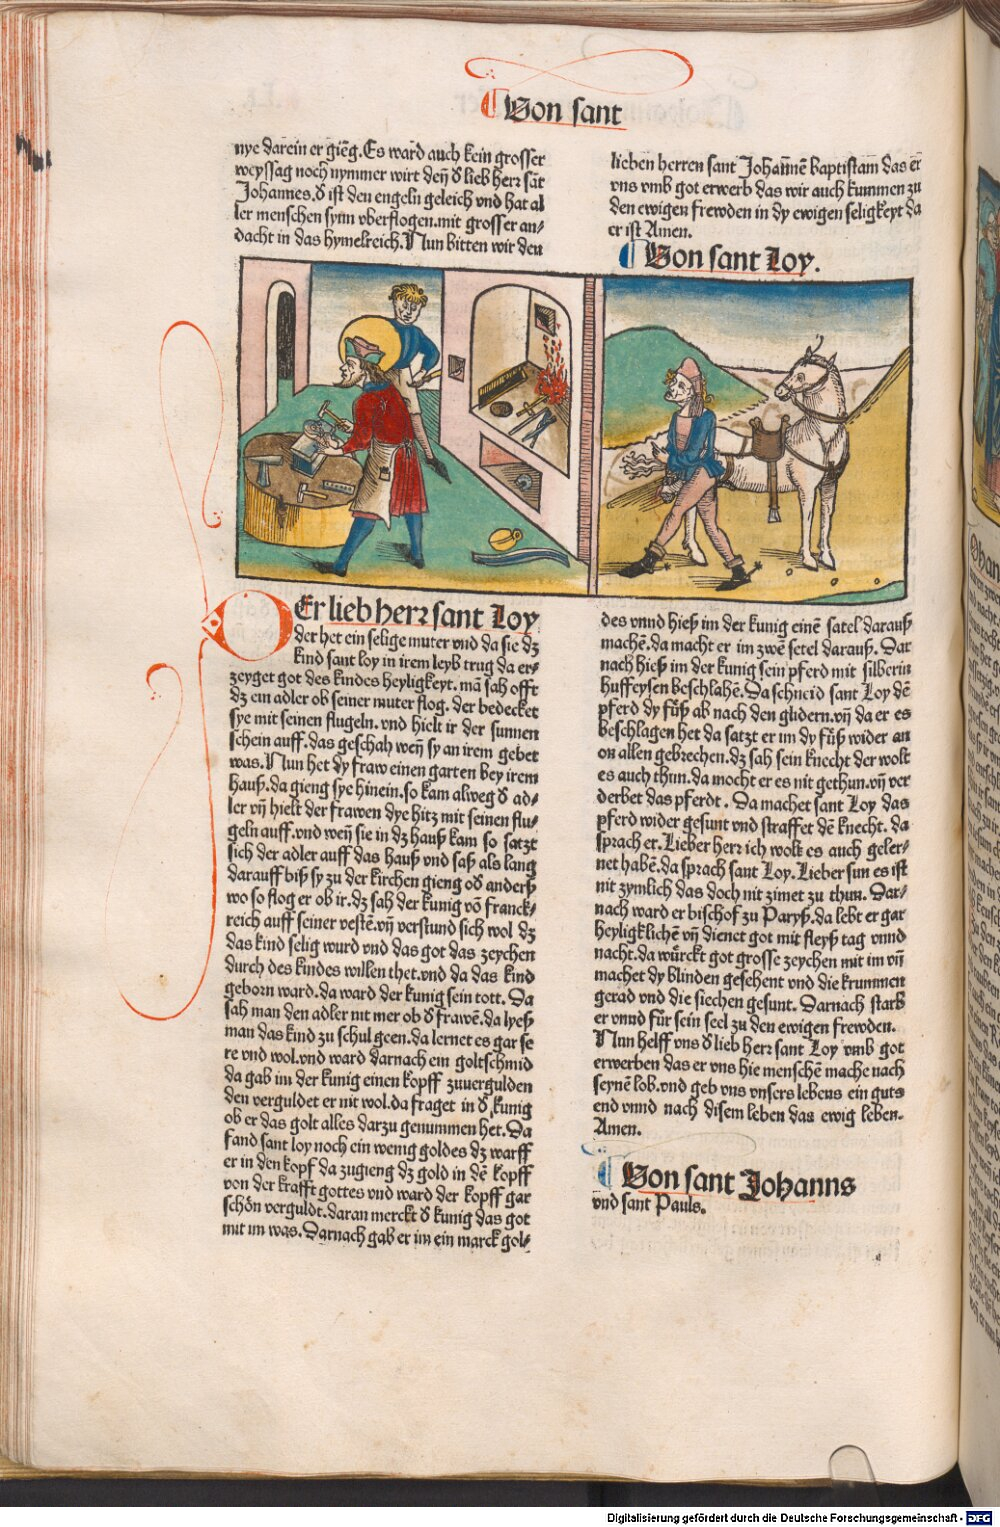 Von sant
nye darein er gieng. Es ward auch kein grosser
weyssag noch nymmer wirt deñ d lieb herr sāt
Johannes. d ist den engeln geleich vnd hat al
ler menschen synn vberflogen. mit grosser an⸗
dacht in das hymelreich. Nun bitten wir den
lieben herren sant Johannem baptistam das er
vns vmb got erwerb das wir auch kummen zu
den ewigen frewden in dy ewigen seligkeyt da
er ist Amen.
Von sant Loy.
DEr lieb herr sant Loy
der het ein selige muter vnd da sie dz
kind sant loy in irem leyb trug da er⸗
zeyget got des kindes heyligkeyt. mā sah offt
dz ein adler ob seiner muter flog. der bedecket
sye mit seinen flugeln. vnd hielt ir der sunnen
schein auff. das geschah weñ sy an irem gebet
was. Nun het dy fraw einen garten bey irem
hauß. da gieng sye hinein. so kam alweg d ad⸗
ler vñ hielt der frawen dye hitz mit seinen flu⸗
geln auff. vnd weñ sie in dz hauß kam so satzt
sich der adler auff das hauß vnd saß als lang
darauff biß sy zu der kirchen gieng oď anderß
wo so flog er ob ir. dz sah der kunig vō franck⸗
reich auff seiner vestē. vñ verstund sich wol dz
das kind selig wurd vnd das got das zeychen
durch des kindes willen thet. vnd da das kind
geborn ward. da ward der kunig sein tott. Da
sah man den adler nit mer ob d frawē. da lyeß
man das kind zu schul geen. da lernet es gar se
re vnd wol. vnd ward darnach ein goltschmid
da gab im der kunig einen kopff zuuergulden
den verguldet er nit wol. da fraget in d kunig
ob er das golt alles darzu genummen het. Da
fand sant loy noch ein wenig goldes dz warff
er in den kopf da zugieng dz gold in dē kopff
von der krafft gottes vnd ward der kopff gar
schön verguldt. daran merckt d kunig das got
mit im was. Darnach gab er im ein marck gol⸗
des vnnd hieß im der kunig einē satel darauß
machē. da macht er im zwē setel darauß. Dar
nach hieß im der kunig sein pferd mit silberin
huffeysen beschlahē. Da schneid sant Loy dē
pferd dy füß ab nach den glidern. vñ da er es
beschlagen het da satzt er im dy füß wider an
on allen gebrechen. dz sah sein knecht der wolt
es auch thun. da mocht er es nit gethun. vñ ver
derbet das pferdt. Da machet sant Loy das
pferd wider gesunt vnd straffet dē knecht. da
sprach er. Lieber herr ich wolt es auch geler⸗
net habē. da sprach sant Loy. Lieber sun es ist
nit zymlich das doch nit zimet zu thun. Dar⸗
nach ward er bischof zu Paryß. da lebt er gar
heyligklichē vñ dienet got mit fleyß tag vnnd
nacht. da würckt got grosse zeychen mit im vñ
machet dy blinden gesehent vnd die krummen
gerad vnd die siechen gesunt. Darnach starb
er vnnd für sein seel zu den ewigen frewden.
Nun helff vns d lieb herr sant Loy vmb got
erwerben das er vns hie menschē mache nach
seynē lob. vnd geb vns vnsers lebens ein guts
end vnnd nach disem leben das ewig leben.
Amen.
Von sant Johanns
vnd sant Pauls.
Digitalisierung gefördert durch die Deutsche Forschungsgemeinschaft - DFG